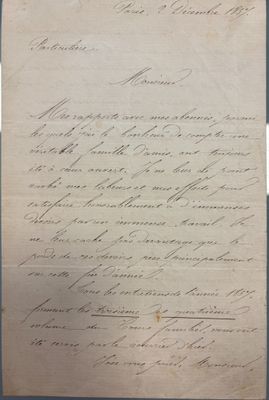 Paris, 2 Décembre 1857.
Particulière.
Monsieur
Mes rapports avec mes abonnés, parmi
lesquels j'ai le bonheur de compter une
véritable famille d'amis, ont toujours
été à cœur ouvert. Je ne leur ai point
caché mes labeurs et mes efforts pour
satisfaire honorablement à d'immenses
devoirs par un immense travail. Je
ne leur cache pas davantage que le
poids de ces devoirs, pèse principalement
sur cette fin d'année.
Tous les entretiens de l'année 1857,
formant les troisième et quatrième
volumes du Cours familier, vous ont
été servis par le courrier
Vous vous, Monsieur,